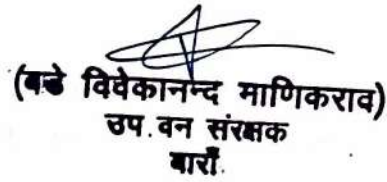 (बडे विवेकानन्द माणिकराव)
उप वन संरक्षक
बाराँ